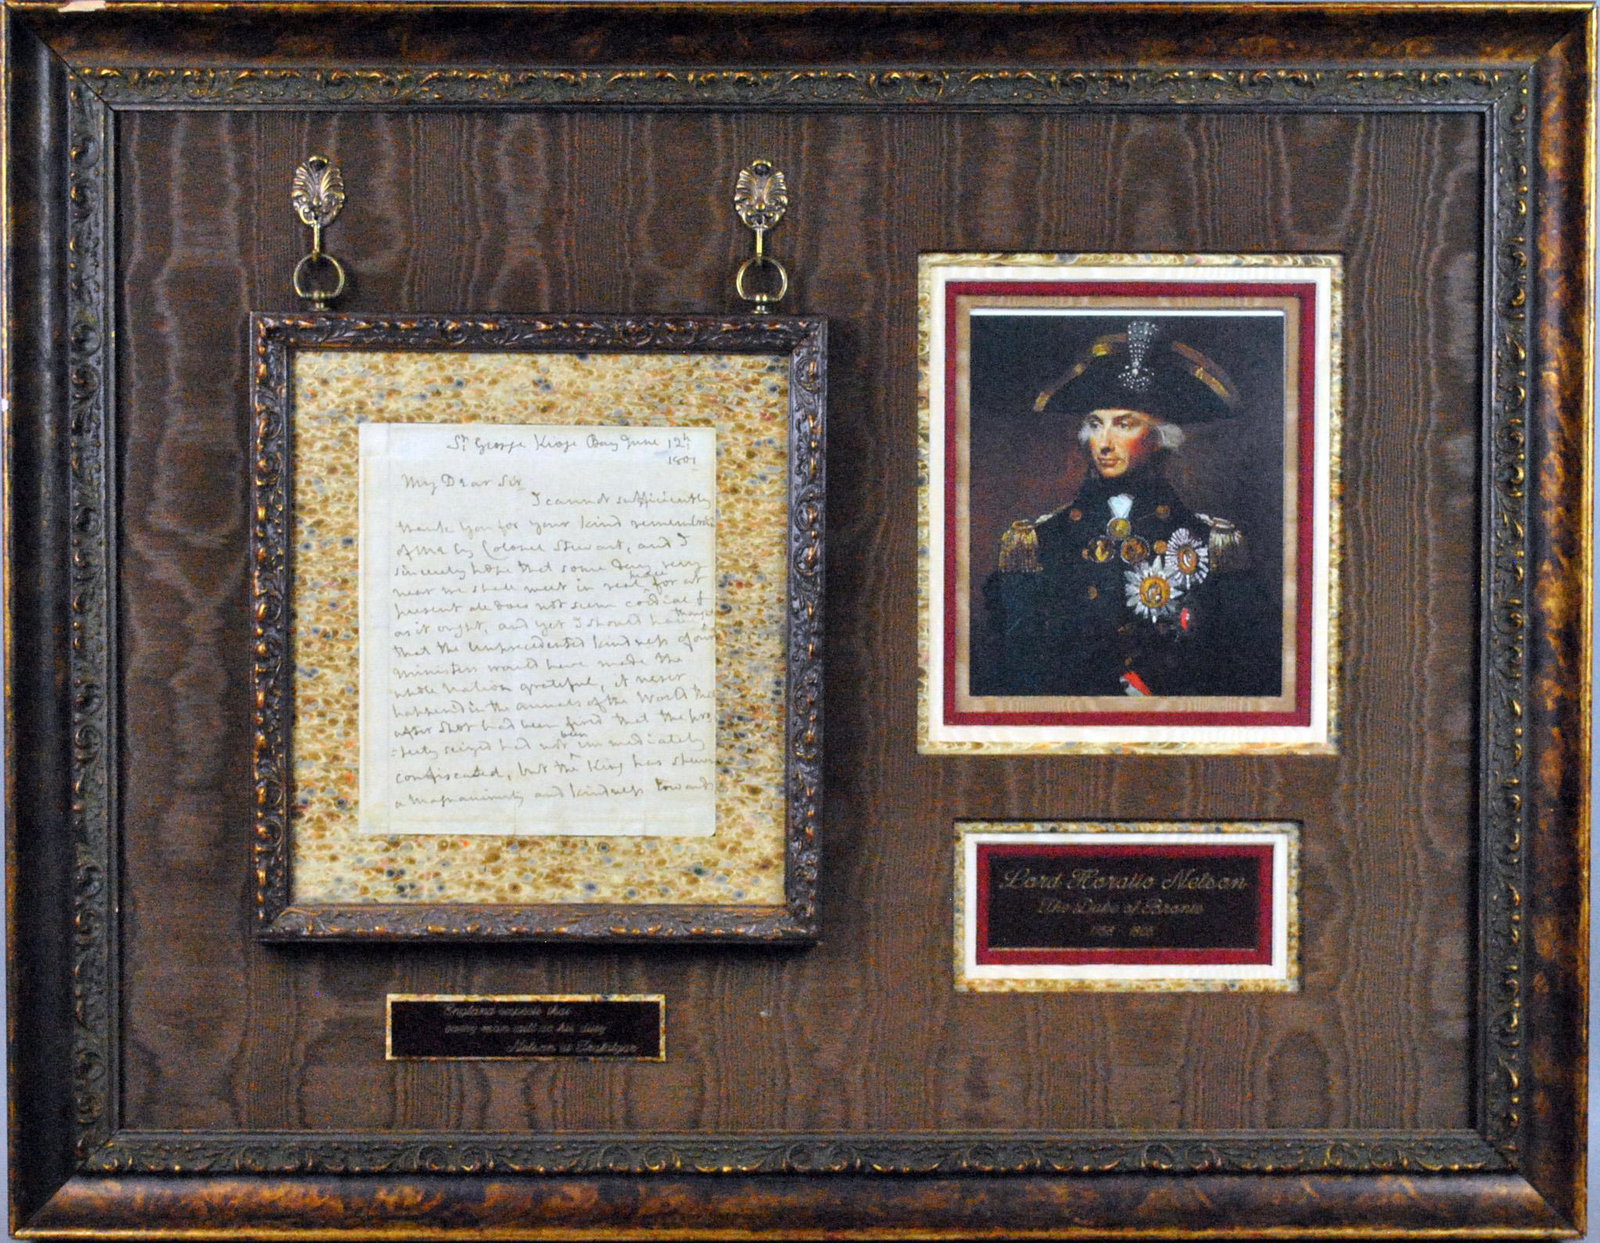 St George Kioge Bay June 12th
1801
My Dear Sir
I cannot sufficiently
thank You for your kind remembrance
of me by Colonel Stewart, and I
sincerely hope that some day very
near we shall meet in real peace for at
present all does not seem cordial
as it ought, and yet I should have thought
that the unprecedented kindness of our
minister would have made the
whole nation grateful, it never
happened in the annals of the World that
after shot had been fired that the pro
-perty seized had not been immediately
confiscated, but the King has shewn
a magnanimity and kindness towards
Lord Horatio Nelson
The Duke of Bronte
1758 - 1805
England expects that
every man will do his duty
Nelson at Trafalgar